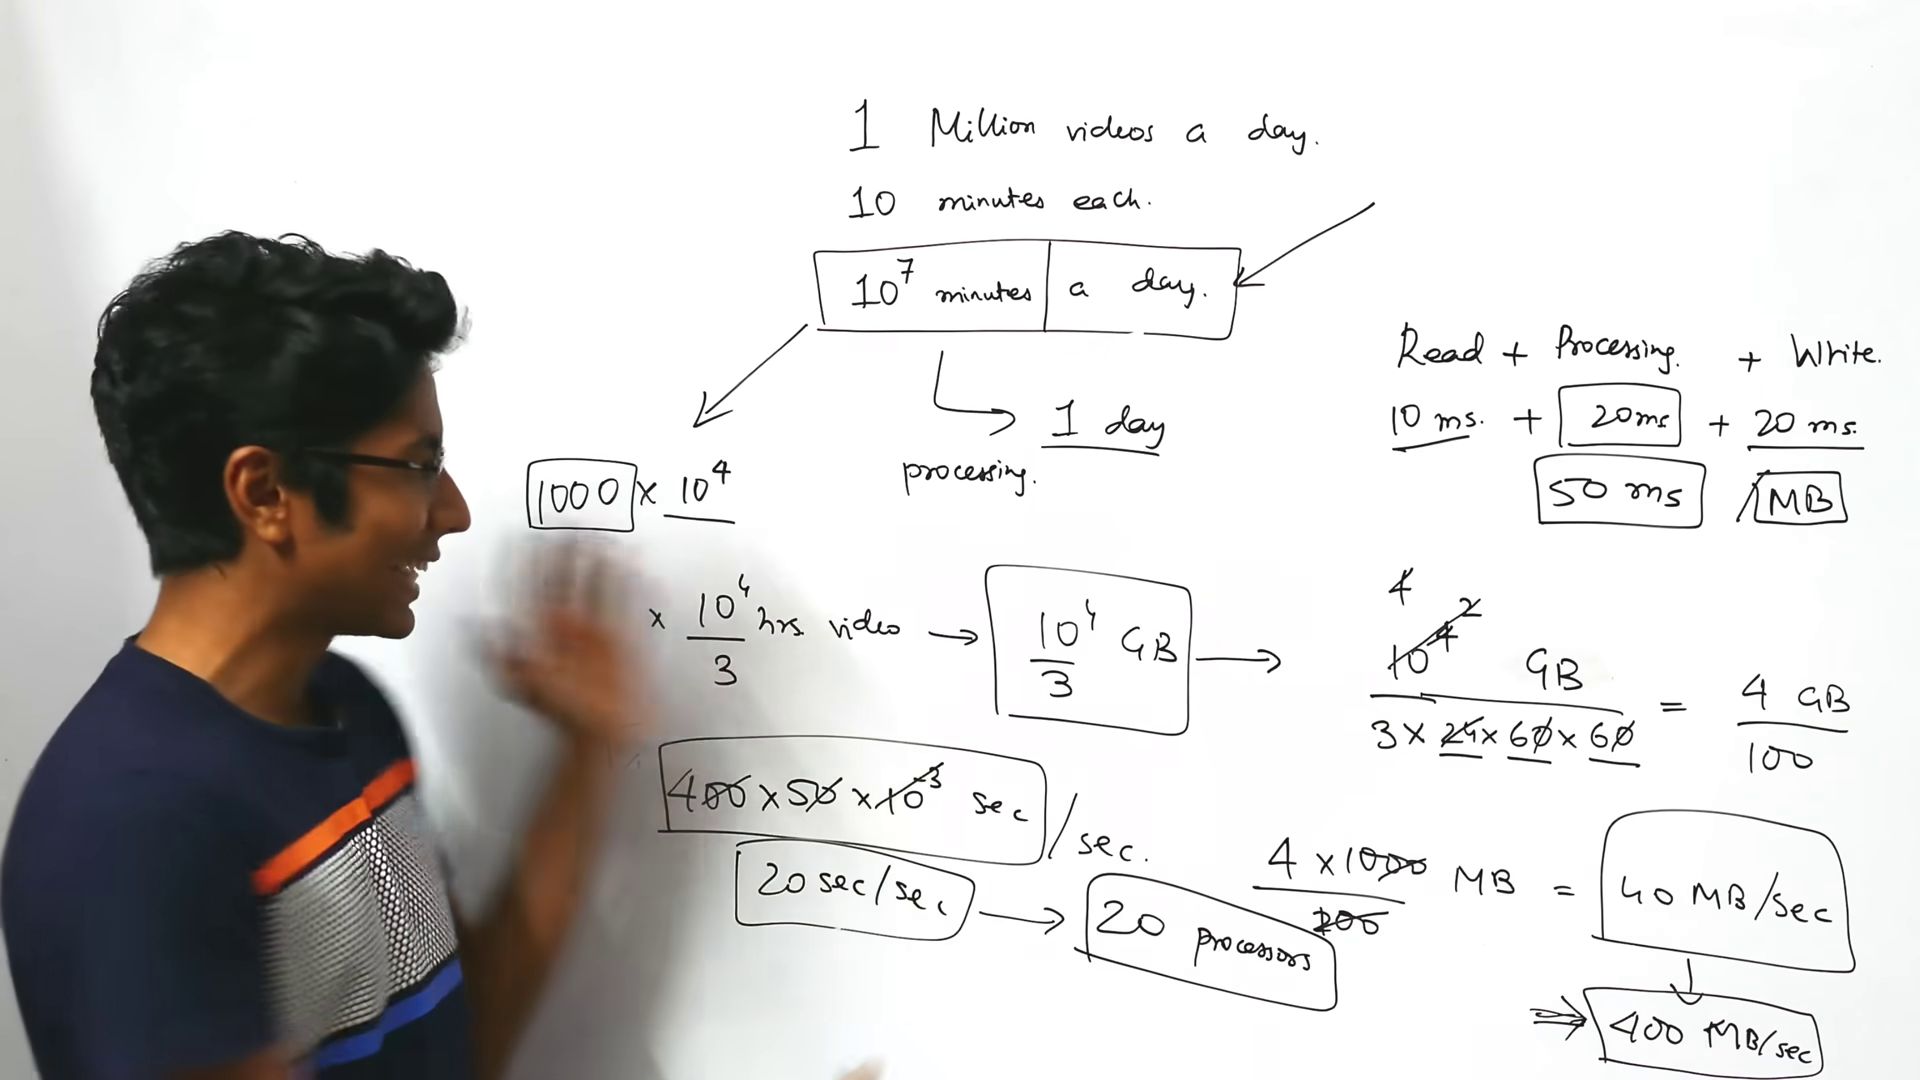 1 Million videos a day.
10 minutes each.
10^7 minutes | a day.
processing. 1 day
1000 x 10^4
x 10^4/3 hrs video → 10^4/3 GB →
Read + Processing. + Write.
10 ms. + 20ms + 20 ms.
50 ms /MB
4 2
10^4 GB / 3 x 24 x 60 x 60 = 4 GB / 100
400 x 50 x 10^-3 sec /sec.
20 sec/sec → 20 processors
4 x 1000 / 100 MB = 40 MB/sec
⇒ 400 MB/sec